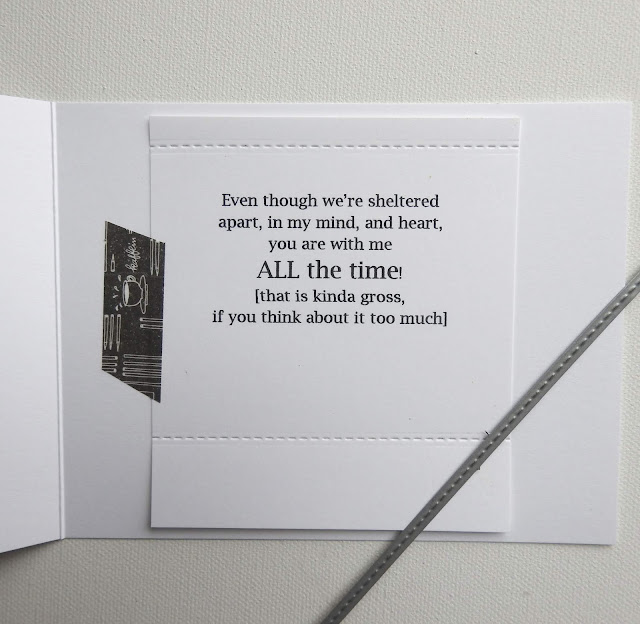 Even though we're sheltered
apart, in my mind, and heart,
you are with me
ALL the time!
[that is kinda gross,
if you think about it too much]